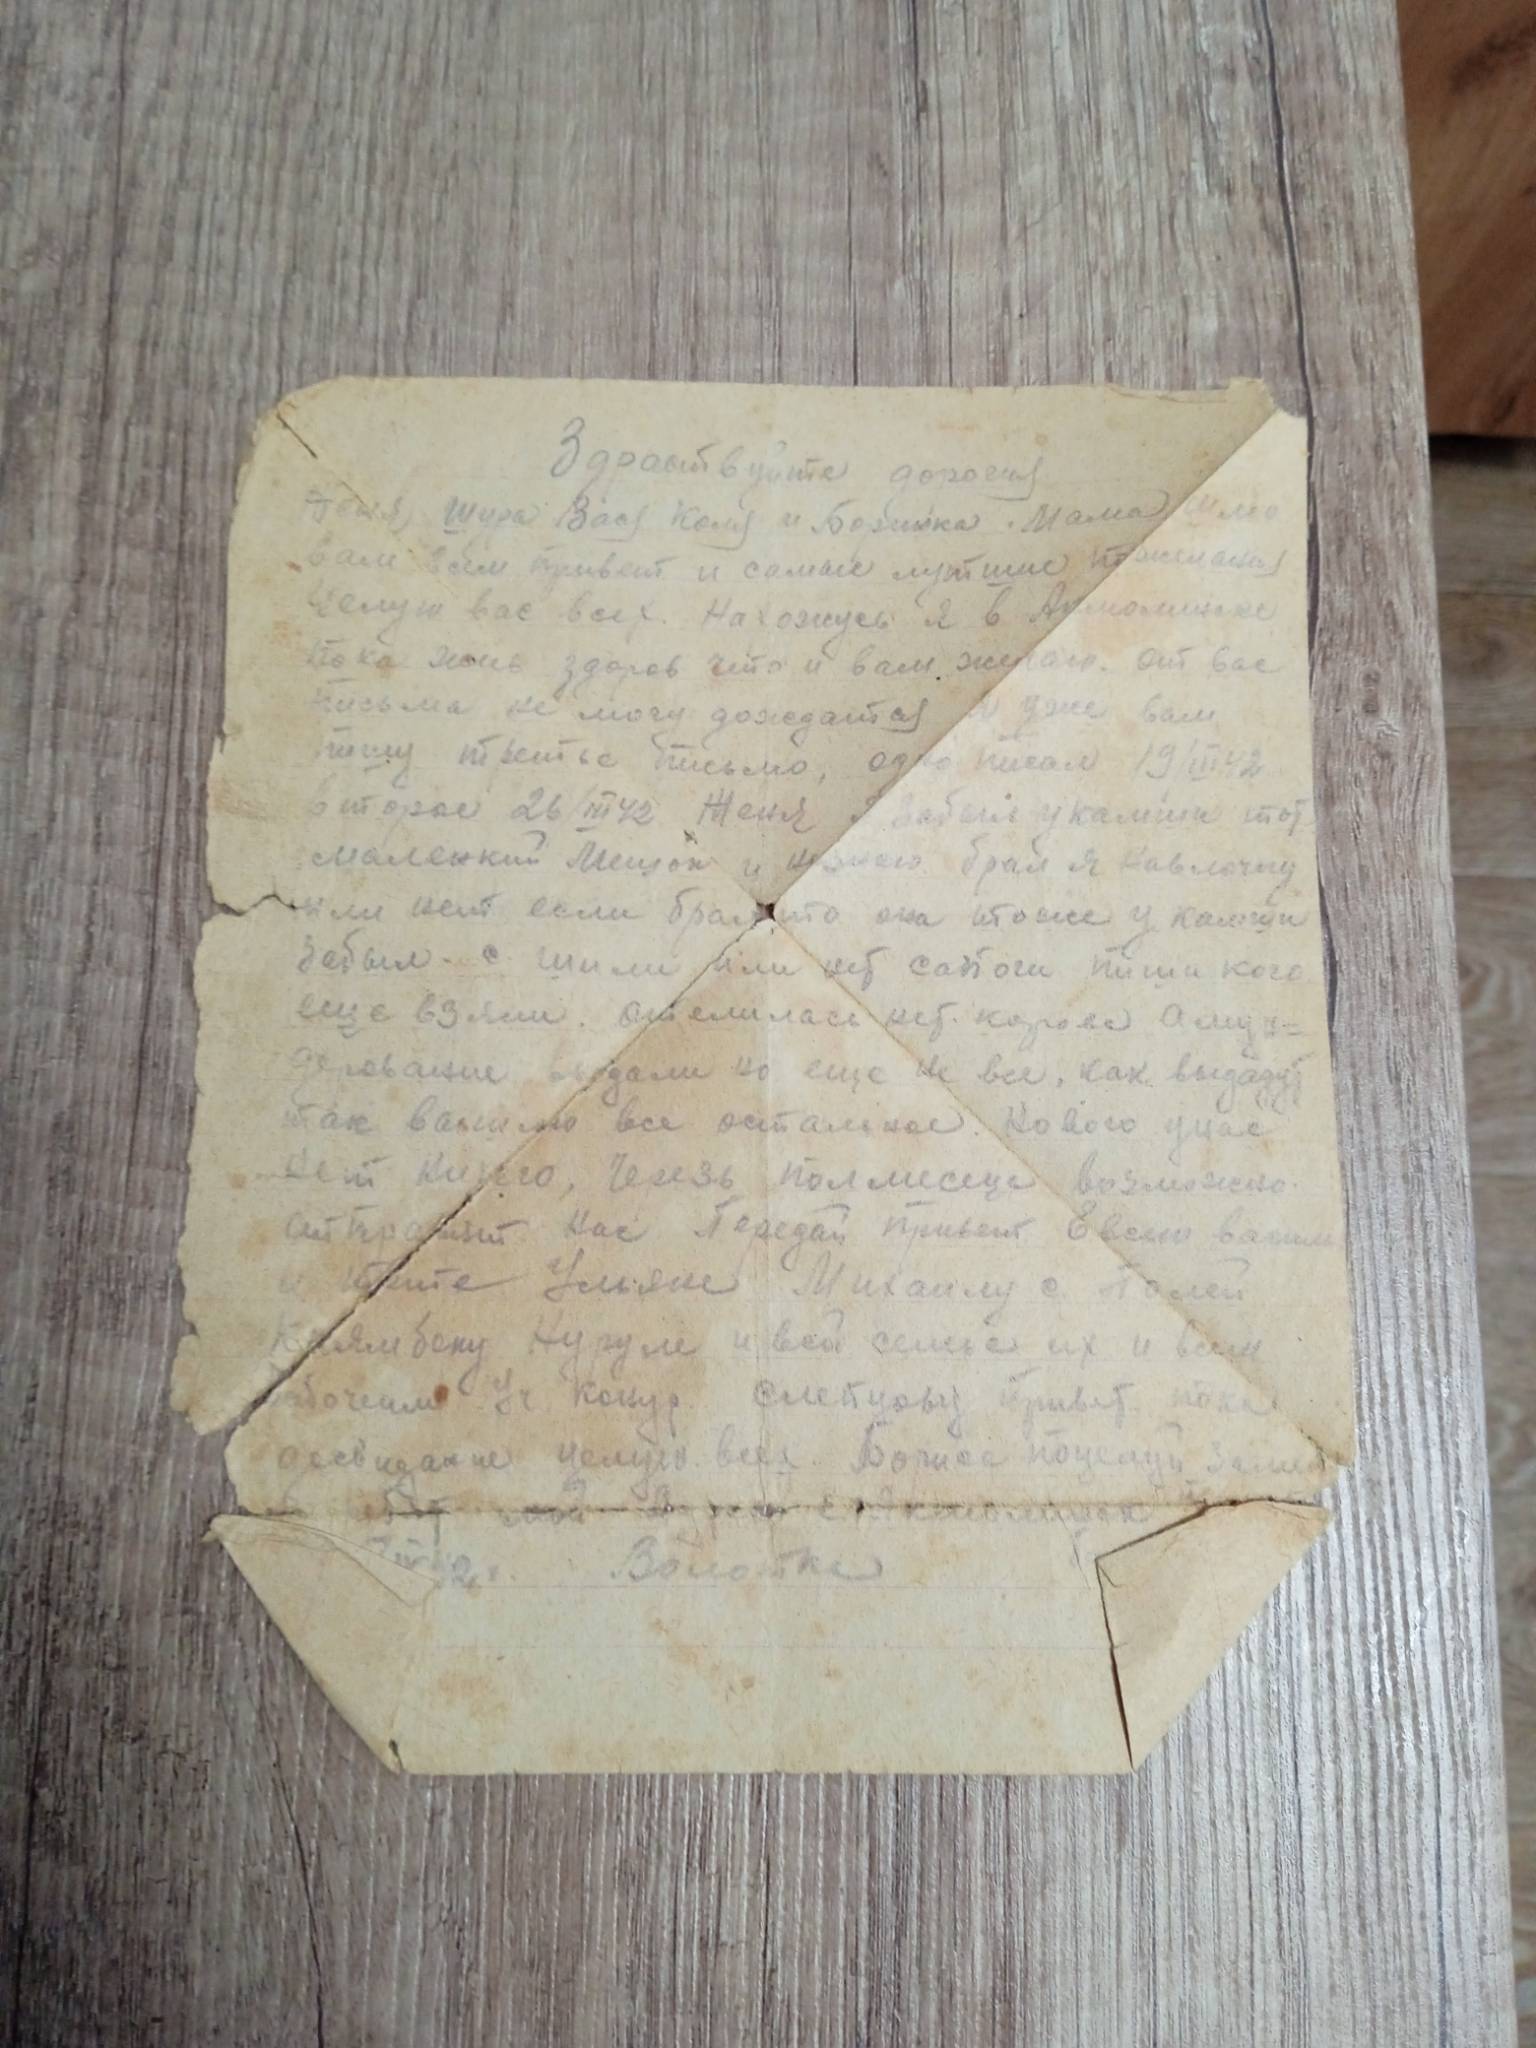 Здраствуйте дорогия
Женя, Шура Вася Коля и Боринка. Мама шлю
вам всем привет и самые лутшие пожелания
Целую вас всех. Нахожусь я в Акмолинске
пока жив здоров что и вам желаю. от вас
письма не могу дождатся я уже вам
пишу третье письмо, одно писал 19/III 42
второе 26/III 42 Женя я забыл у тот
маленкий Мешок и незнаю брал я
или нет если брал то она тоже у
забыл. с или нет сапоги пиши кого
еще взяли. отелилась нет корова Амун=
дерование выдали но еще не все, как выдадут
так вышлю все остальное. Нового унас
нет ничего, Черезь полмесеца возможно
отправят нас Передай привет Евсею
и тете Ульяне Михаилу с Полей
и всей семье их и всем
Слепцову привет пока
досвидание целую всех. Бориса поцелуй за меня
Акмолинск
2г.